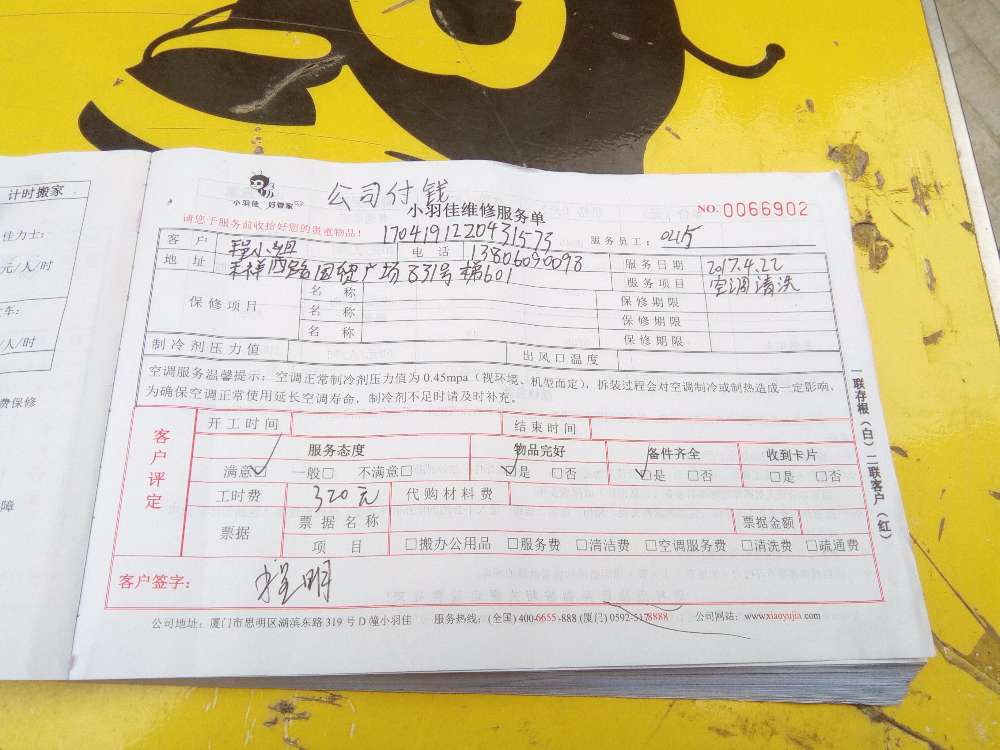 计时搬家
佳力士:
元/人/时
车:
/人/时
费保修
障
小羽佳 好管家
公司付钱
小羽佳维修服务单
NO.0066902
请您于服务前收拾好您的贵重物品!
1704191220431573
服务员工:
客户 程小姐 电话 13806090093 服务日期 2017.4.22
地址 国贸广场 331号 梯601 服务项目 空调清洗
保修项目 名称 保修期限
名称 保修期限
名称 保修期限
制冷剂压力值 出风口温度
空调服务温馨提示:空调正常制冷剂压力值为0.45mpa(视环境、机型而定),拆装过程会对空调制冷或制热造成一定影响,
为确保空调正常使用延长空调寿命,制冷剂不足时请及时补充。
客户评定
开工时间 结束时间
服务态度 物品完好 备件齐全 收到卡片
满意☑ 一般□ 不满意□ ☑是 □否 ☑是 □否 □是 □否
工时费 320元 代购材料费
票据 票据名称 票据金额
项目 □搬办公用品 □服务费 □清洁费 □空调服务费 □清洗费 □疏通费
客户签字: 程明
一联存根(白)二联客户(红)
公司地址:厦门市思明区湖滨东路319号D幢小羽佳 服务热线:(全国)400-6655-888 (厦门)0592-5178888 公司网站:www.xiaoyujia.com